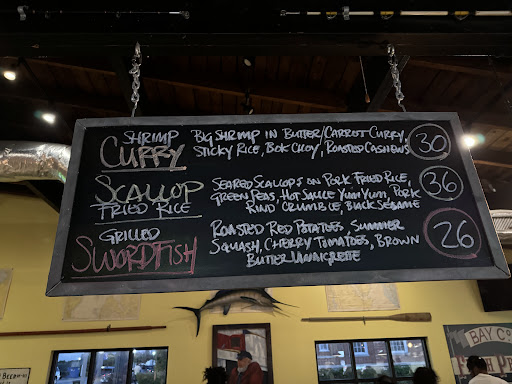 SHRIMP
CURRY
BIG SHRIMP IN BUTTER/CARROT CURRY,
STICKY RICE, BOK CHOY, ROASTED CASHEWS
30
SCALLOP
FRIED RICE
SEARED SCALLOPS ON PORK FRIED RICE,
GREEN PEAS, HOT SAUCE YUM YUM, PORK
RIND CRUMBLE, BLACK SESAME
36
GRILLED
SWORDFISH
ROASTED RED POTATOES, SUMMER
SQUASH, CHERRY TOMATOES, BROWN
BUTTER VINAIGRETTE
26
BAY CO